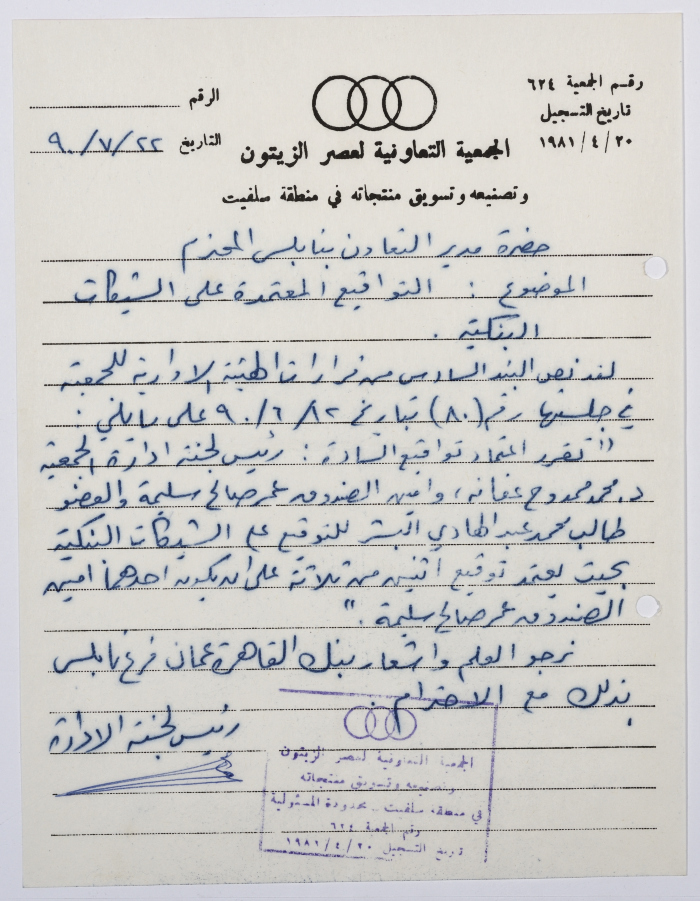 رقم الجمعية ٦٢٤
تاريخ التسجيل
١٩٨١/٤/٢٠
الرقم
التاريخ ٩٠/٧/٢٢
الجمعية التعاونية لعصر الزيتون
وتصنيعه وتسويق منتجاته في منطقة سلفيت
حضرة مدير التعاون بنابلس المحترم
الموضوع : التواقيع المعتمدة على الشيكات
البنكية .
لقد نص البند السادس من قرارات الهيئة الادارية للجمعية
في جلستها رقم (٨٠) بتاريخ ٩٠/٦/١٢ على ما يلي :
" تقرر اعتماد تواقيع السادة : رئيس لجنة ادارة الجمعية
د. محمد ممدوح عفانه ، وامين الصندوق عمر صالح سليمة والعضو
طالب محمد عبد الهادي للتوقيع على الشيكات البنكية
بحيث يعتمد توقيع اثنين من ثلاثة على ان يكون احدهما امين
الصندوق عمر صالح سليمة . "
نرجو العلم واشعار بنك القاهرة عمان فرع نابلس
بذلك مع الاحترام .
رئيس لجنة الادارة
الجمعية التعاونية لعصر الزيتون
وتصنيعه وتسويق منتجاته
في منطقة سلفيت - محدودة المسئولية
رقم الجمعية ٦٢٤
تاريخ التسجيل ١٩٨١/٤/٢٠